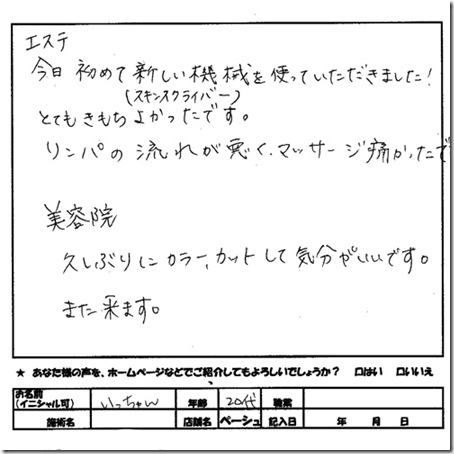 エステ
今日 初めて 新しい機械を使っていただきました!
(スキンスクライバー)
とてもきもちよかったです。
リンパの流れが悪く、マッサージ痛かったで
美容院
久しぶりにカラー、カットして気分がいいです。
また来ます。
★ あなた様の声を、ホームページなどでご紹介してもよろしいでしょうか? 口はい 口いいえ
お名前 (イニシャル可) いっちゃん 年齢 20代 職業
施術名 店舗名 ベーシュ 記入日 年 月 日